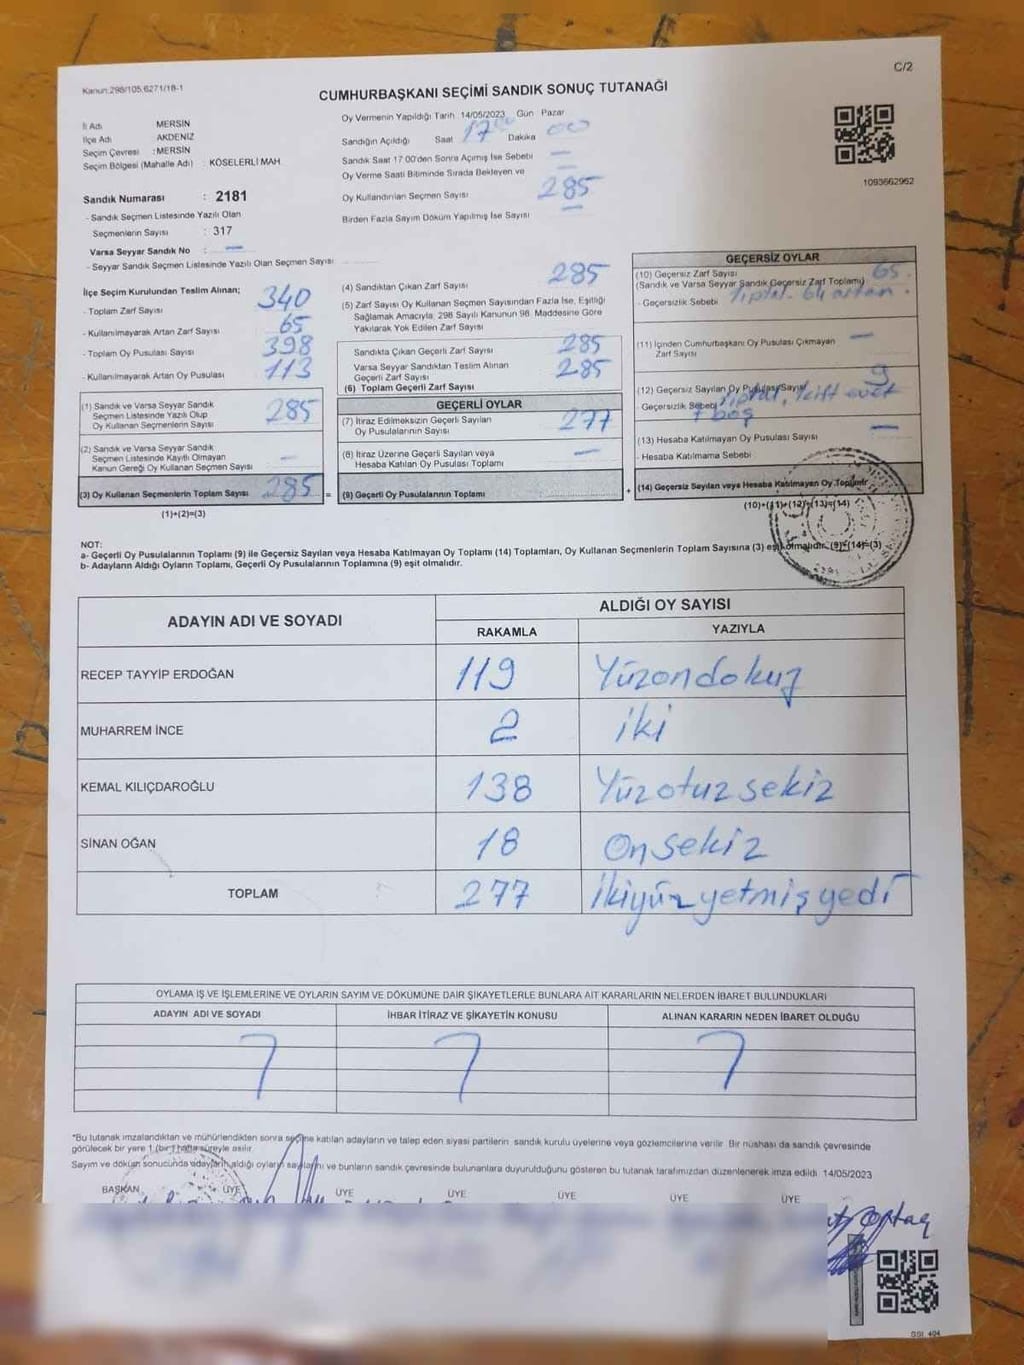 C/2
Kanun:298/105,6271/18-1
CUMHURBAŞKANI SEÇİMİ SANDIK SONUÇ TUTANAĞI
İl Adı : MERSİN
İlçe Adı : AKDENİZ
Seçim Çevresi : MERSİN
Seçim Bölgesi (Mahalle Adı) : KÖSELERLİ MAH
Sandık Numarası : 2181
- Sandık Seçmen Listesinde Yazılı Olan
Seçmenlerin Sayısı : 317
Varsa Seyyar Sandık No : —
- Seyyar Sandık Seçmen Listesinde Yazılı Olan Seçmen Sayısı
Oy Vermenin Yapıldığı Tarih 14/05/2023 Gün Pazar
Sandığın Açıldığı Saat 17 00 Dakika 00
Sandık Saat 17 00'den Sonra Açımış İse Sebebi —
Oy Verme Saati Bitiminde Sırada Bekleyen ve
Oy Kullandırılan Seçmen Sayısı 285
Birden Fazla Sayım Döküm Yapılmış İse Sayısı —
1093662962
İlçe Seçim Kurulundan Teslim Alınan;
- Toplam Zarf Sayısı 340
- Kullanılmayarak Artan Zarf Sayısı 65
- Toplam Oy Pusulası Sayısı 398
- Kullanılmayarak Artan Oy Pusulası 113
(1) Sandık ve Varsa Seyyar Sandık
Seçmen Listesinde Yazılı Olup
Oy Kullanan Seçmenlerin Sayısı 285
(2) Sandık ve Varsa Seyyar Sandık
Seçmen Listesinde Kayıtlı Olmayan
Kanun Gereği Oy Kullanan Seçmen Sayısı —
(3) Oy Kullanan Seçmenlerin Toplam Sayısı 285 =
(1)+(2)=(3)
(4) Sandıktan Çıkan Zarf Sayısı 285
(5) Zarf Sayısı Oy Kullanan Seçmen Sayısından Fazla İse, Eşitliği
Sağlamak Amacıyla, 298 Sayılı Kanunun 98. Maddesine Göre
Yakılarak Yok Edilen Zarf Sayısı
Sandıkta Çıkan Geçerli Zarf Sayısı 285
Varsa Seyyar Sandıktan Teslim Alınan
Geçerli Zarf Sayısı 285
(6) Toplam Geçerli Zarf Sayısı
GEÇERLİ OYLAR
(7) İtiraz Edilmeksizin Geçerli Sayılan
Oy Pusulalarının Sayısı 277
(8) İtiraz Üzerine Geçerli Sayılan veya
Hesaba Katılan Oy Pusulası Toplamı —
(9) Geçerli Oy Pusulalarının Toplamı +
GEÇERSİZ OYLAR
(10) Geçersiz Zarf Sayısı 65.
(Sandık ve Varsa Seyyar Sandık Geçersiz Zarf Toplamı)
- Geçersizlik Sebebi 1iptal. 64 artan.
(11) İçinden Cumhurbaşkanı Oy Pusulası Çıkmayan —
Zarf Sayısı
(12) Geçersiz Sayılan Oy Pusulası Sayısı 9
Geçersizlik Sebebi 1iptal, 1çift evet
7 boş
(13) Hesaba Katılmayan Oy Pusulası Sayısı —
- Hesaba Katılmama Sebebi
(14) Geçersiz Sayılan veya Hesaba Katılmayan Oy Toplamı
(10)+(11)+(12)+(13)=(14)
NOT:
a- Geçerli Oy Pusulalarının Toplamı (9) ile Geçersiz Sayılan veya Hesaba Katılmayan Oy Toplamı (14) Toplamları, Oy Kullanan Seçmenlerin Toplam Sayısına (3) eşit olmalıdır. (9)+(14)=(3)
b- Adayların Aldığı Oyların Toplamı, Geçerli Oy Pusulalarının Toplamına (9) eşit olmalıdır.
ADAYIN ADI VE SOYADI ALDIĞI OY SAYISI
RAKAMLA YAZIYLA
RECEP TAYYİP ERDOĞAN 119 Yüzondokuz
MUHARREM İNCE 2 iki
KEMAL KILIÇDAROĞLU 138 Yüzotuzsekiz
SİNAN OĞAN 18 Onsekiz
TOPLAM 277 İkiyüzyetmişyedi
OYLAMA İŞ VE İŞLEMLERİNE VE OYLARIN SAYIM VE DÖKÜMÜNE DAİR ŞİKAYETLERLE BUNLARA AİT KARARLARIN NELERDEN İBARET BULUNDUKLARI
ADAYIN ADI VE SOYADI İHBAR İTİRAZ VE ŞİKAYETİN KONUSU ALINAN KARARIN NEDEN İBARET OLDUĞU
*Bu tutanak imzalandıktan ve mühürlendikten sonra seçime katılan adayların ve talep eden siyasi partilerin sandık kurulu üyelerine veya gözlemcilerine verilir. Bir nüshası da sandık çevresinde
görülecek bir yere 1 (bir) hafta süreyle asılır.
Sayım ve döküm sonucunda adayların aldığı oyların sayılarını ve bunların sandık çevresinde bulunanlara duyurulduğunu gösteren bu tutanak tarafımızdan düzenlenerek imza edildi. 14/05/2023
BAŞKAN ÜYE ÜYE ÜYE ÜYE ÜYE ÜYE